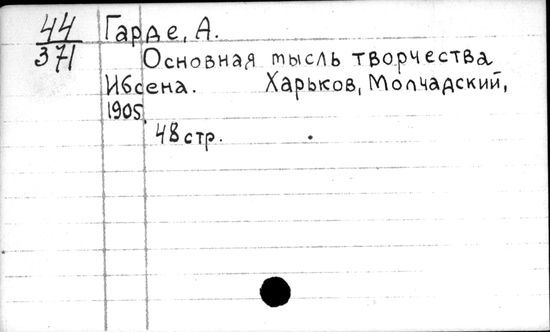 44 Гарде, А.
371 Основная мысль творчества
Ибсена. Харьков, Молчадский,
1905.
48 стр.